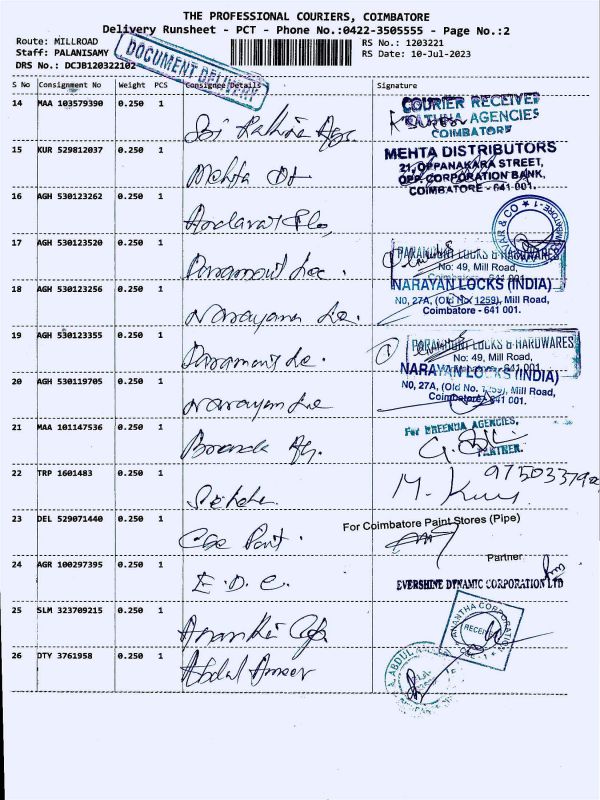 THE PROFESSIONAL COURIERS, COIMBATORE
Delivery Runsheet - PCT - Phone No.:0422-3505555 - Page No.:2
Route: MILLROAD RS No.: 1203221
Staff: PALANISAMY RS Date: 10-Jul-2023
DRS No.: DCJB120322102
DOCUMENT DELIVERY
S No Consignment No Weight PCS Consignee Details Signature
14 MAA 103579390 0.250 1 Sri Rathna Ags.
COURIER RECEIVED
RATHNA AGENCIES
COIMBATORE
15 KUR 529812037 0.250 1 Mehta Dt
MEHTA DISTRIBUTORS
21, OPPANAKARA STREET,
OPP. CORPORATION BANK,
COIMBATORE - 641 001.
16 AGH 530123262 0.250 1
17 AGH 530123520 0.250 1 Paramount Loc.
PARAMOUNT LOCKS & HARDWARES
No: 49, Mill Road,
Coimbatore - 641 001.
18 AGH 530123256 0.250 1 Narayana Lo.
NARAYAN LOCKS (INDIA)
NO, 27A, (Old No 1259), Mill Road,
Coimbatore - 641 001.
19 AGH 530123355 0.250 1 Paramount Lo.
PARAMOUNT LOCKS & HARDWARES
No: 49, Mill Road,
20 AGH 530119705 0.250 1 Narayan Lo
NARAYAN LOCKS (INDIA)
NO, 27A, (Old No. 1259), Mill Road,
Coimbatore - 641 001.
21 MAA 101147536 0.250 1
For BREENDA AGENCIES,
PARTNER.
22 TRP 1601483 0.250 1
M. Kum
23 DEL 529071440 0.250 1 Cbe Paint.
For Coimbatore Paint Stores (Pipe)
Partner
24 AGR 100297395 0.250 1 E.D.C.
EVERSHINE DYNAMIC CORPORATION LTD
25 SLM 323709215 0.250 1
ANANTHA CORPORATION
RECEIVED
26 DTY 3761958 0.250 1 Abdul Ameer